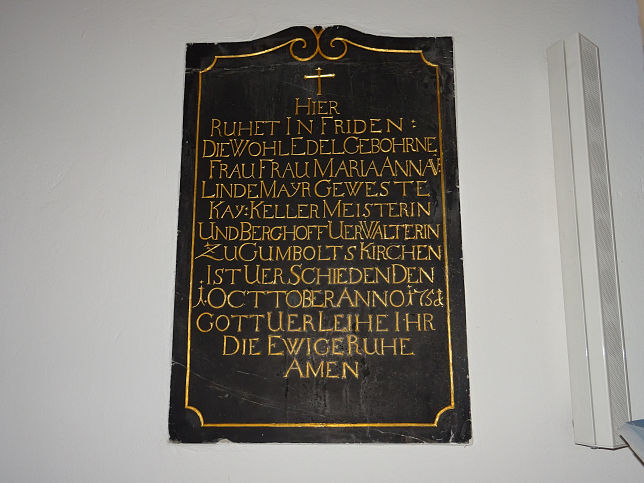 HIER
RUHET IN FRIDEN:
DIE WOHL EDEL GEBOHRNE
FRAU FRAU MARIA ANNA V:
LINDEMAYR GEWESTE
KAY: KELLER MEISTERIN
UND BERGHOFF UERWALTERIN
ZU GUMBOLTS KIRCHEN
IST UER SCHIEDEN DEN
OCTTOBER ANNO
GOTT UER LEIHE IHR
DIE EWIGE RUHE
AMEN